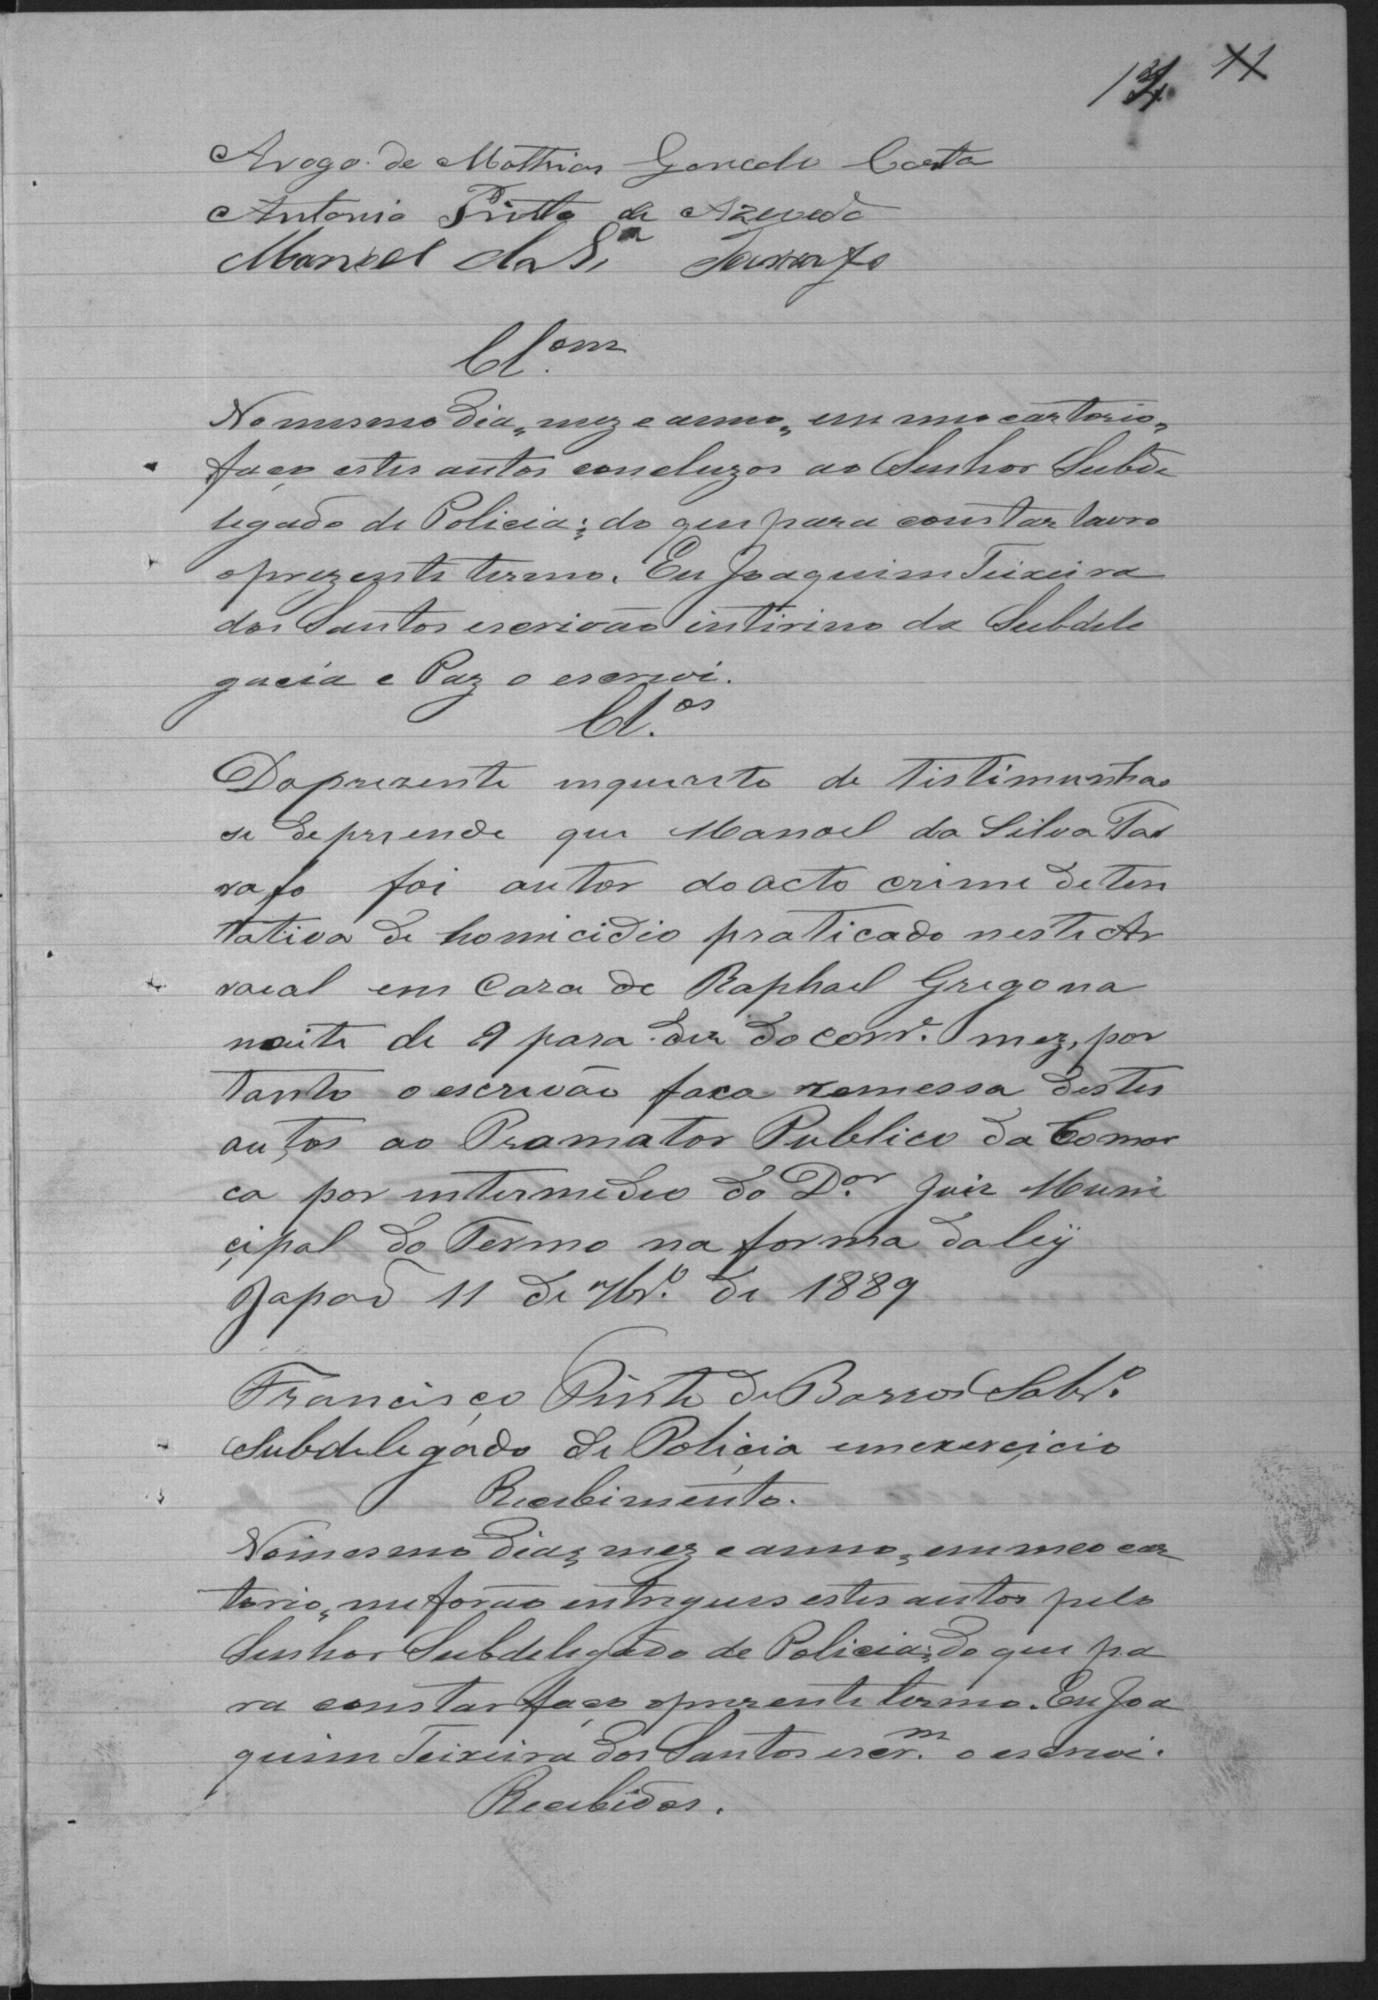 11
Arogo de Mathias Goncalo Costa
Antonio Pinto de Azevedo
Manoel da S.ª Tarrafo
Cl.am
No mesmo dia, mez e anno, em meo cartorio,
faço estes autos concluzos ao Senhor Subde
legado de Policia; do que para constar lavro
o prezente termo. Eu Joaquim Teixeira
dos Santos escrivão intirino da Subdele
gacia e Paz o escrevi.
Cl.os
Do prezente inquerito de tistimunhas
se deprende que Manoel da Silva Tar
rafo foi autor do acto crime de ten
tativa de homicidio praticado neste Ar
raeal em Caza de Raphael Grego na
noite de 9 para dez do corr.e mez, por
tanto o escrivão faca remessa destes
autos ao Pramator Publico da Comar
ca por intermedio do D.or Juiz Muni
çipal do Termo na forma da ley
Japão 11 de 7br.o de 1889
Francisço Pinto de Barros Sobr.o
Subdelegado de Poliçia em exerçicio
Recebimento.
No mesmo dia, mez e anno, em meo car
torio, me forão entregues estes autos pelo
Senhor Subdelegado de Policia; do que pa
ra constar faço o prezente termo. Eu Joa
quim Teixeira dos Santos escr.m o escrevi.
Recebidos.